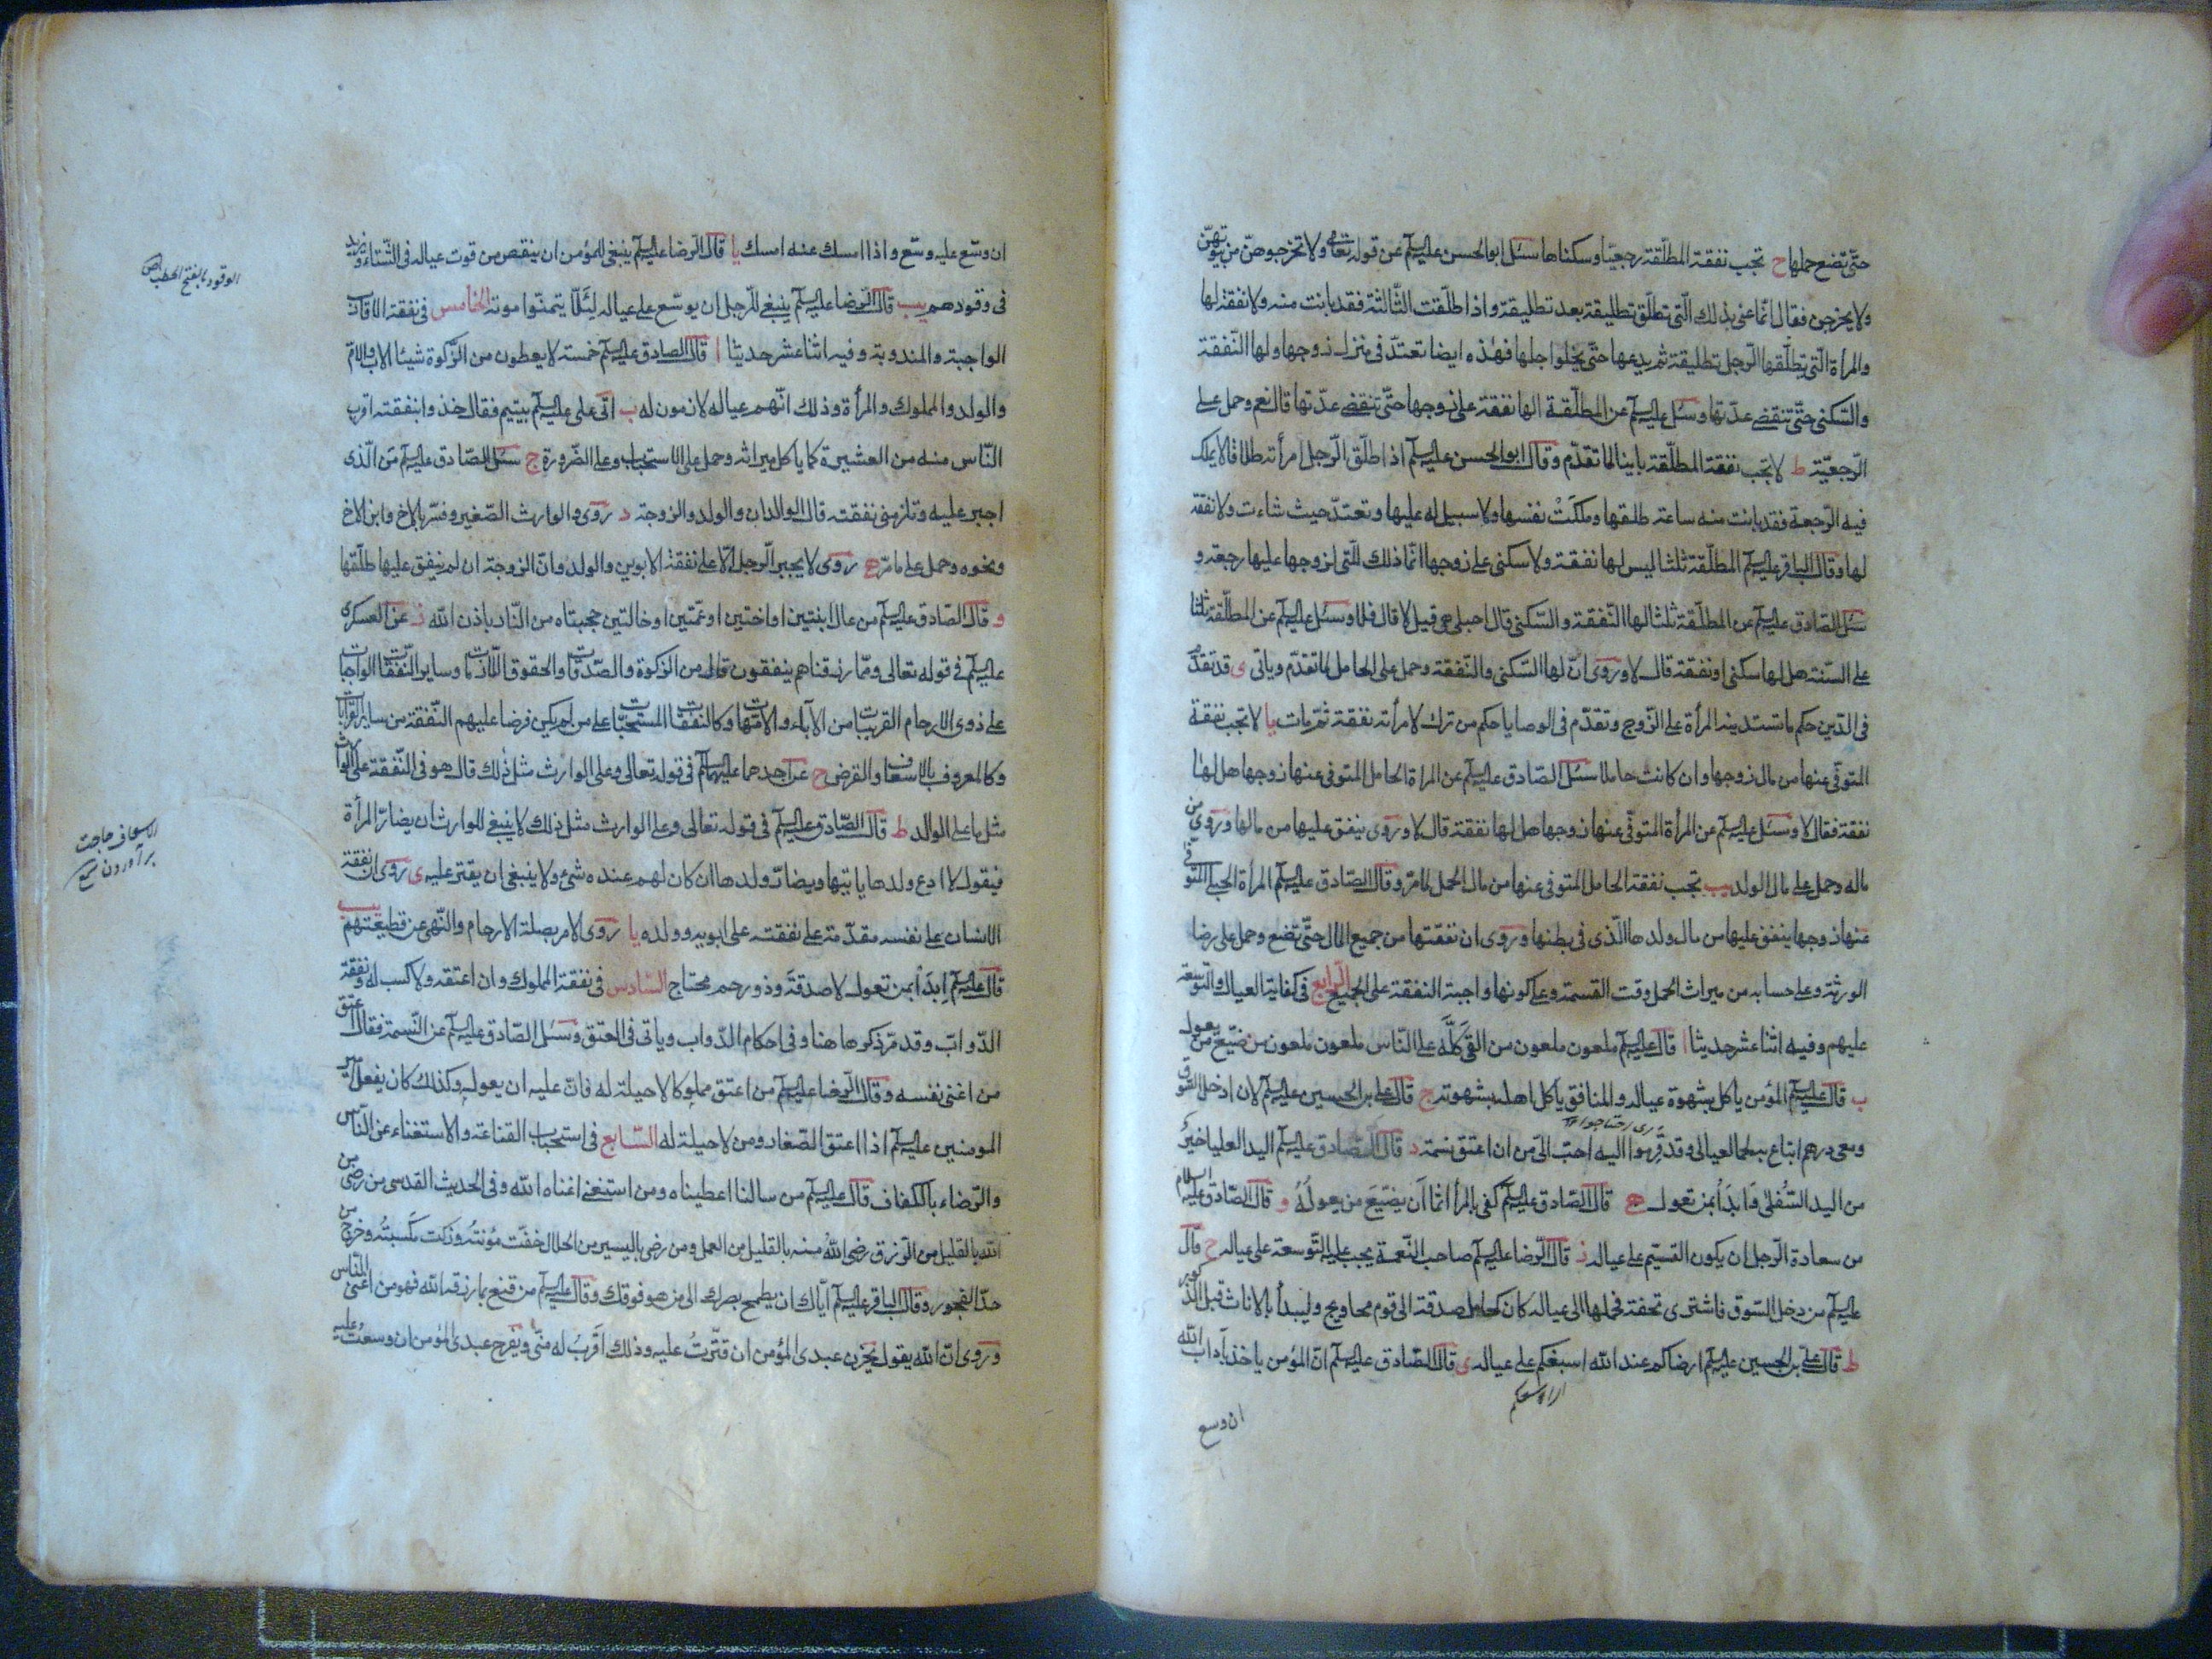 حتّى تضع حملها ح تجب نفقة المطلّقة رجعيّا وسكناها سئل ابو الحسن عليه السلم عن قوله تعالى ولا تخرجوهنّ من بيوتهنّ
ولا يخرجن فقال انّما عنى بذلك الّتى تطلّق تطليقة بعد تطليقة واذا طلّقت الثّالثة فقد بانت منه ولا نفقة لها
والمرأة الّتى يطلّقها الرّجل تطليقة ثم يدعها حتّى يخلوا جلها فهذه ايضا تعتدّ فى منزل زوجها ولها النّفقة
والسّكنى حتّى تنقضى عدّتها وسئل عليه السلم عن المطلّقة الها نفقة على زوجها حتّى تنقضى عدّتها قال نعم وحمل على
الرّجعيّة ط لا تجب نفقة المطلّقة باينا لما تقدّم وقال ابو الحسن عليه السلم اذا طلّق الرّجل امرأته طلاقا لا يملك
فيه الرّجعة فقد بانت منه ساعة طلقها وملكت نفسها ولا سبيل له عليها وتعتدّ حيث شاءت ولا نفقة
لها وقال الباقر عليه السلم المطلّقة ثلثا ليس لها نفقة ولا سكنى على زوجها انّما ذلك للّتى لزوجها عليها رجعة و
سئل الصّادق عليه السلم عن المطلّقة ثلثا لها النّفقة والسّكنى قال احبلى هى قيل لا قال فلا وسئل عليه السلم عن المطلّقة ثلثا
على السّنة هل لها سكنى او نفقة قال لا وروى انّ لها السّكنى والنّفقة وحمل على الحامل لما تقدّم وياتى ى قد تقدّم
فى الدّين حكم ما تستدينه المرأة على الزّوج وتقدّم فى الوصايا حكم من ترك لامرأته نفقة ثمّ مات يا لا تجب نفقة
المتوفّى عنها من مال زوجها وان كانت حاملا سئل الصّادق عليه السلم عن المراة الحامل المتوفى عنها زوجها هل لها
نفقة فقال لا وسئل عليه السلم عن المرأة المتوفّى عنها زوجها هل لها نفقة قال لا وروى ينفق عليها من مالها وروى من
ماله وحمل على مال الولد يب تجب نفقة الحامل المتوفى عنها من مال الحمل لما مرّ وقال الصّادق عليه السلم المرأة الحبلى المتوفّى
عنها زوجها ينفق عليها من مال ولدها الّذى فى بطنها وروى ان نفقتها من جميع المال حتّى تضع وحمل على رضا
الورثة وعلى حسابه من ميراث الحمل وقت القسمة وعلى كونها واجبة النفقة على الجميع الرّابع فى كفاية العيال والتّوسعة
عليهم وفيه اثنا عشر حديثا ا قال عليه السلم ملعون ملعون من القى كلّه على النّاس ملعون ملعون من ضيّع من يعول
ب قال عليه السلم المؤمن ياكل بشهوة عياله والمنافق ياكل اهله بشهوته ج قال على بن الحسين عليه السلم لان ادخل السّوق
ومعى درهم ابتاع به لحما لعيالى وقد قرموا اليه احبّ الىّ من ان اعتق نسمة د قال الصّادق عليه السلم اليد العليا خير
من اليد السّفلى وابدأ بمن تعول ه قال الصّادق عليه السلم كفى بالمرأ اثما ان يضيّع من يعوله و قال الصّادق عليه السلام
من سعادة الرّجل ان يكون القيّم على عياله ز قال الرّضا عليه السلم صاحب النّعمة يجب عليه التّوسعة على عياله ح قال
عليه السلم من دخل السّوق فاشترى تحفة فحملها الى عياله كان كحامل صدقة الى قوم محاويج وليبدأ بالاناث قبل الذّكور
ط قال على بن الحسين عليه السلم ارضاكم عند الله اسبغكم على عياله ى قال الصّادق عليه السلم انّ المؤمن ياخذ بآداب الله
ان وسع
ان وسّع عليه وسّع واذا امسك عنه امسك يا قال الرّضا عليه السلم ينبغى للمؤمن ان ينقص من قوت عياله فى الشّتاء ويزيد
فى وقودهم يب قال الرّضا عليه السلم ينبغى للرّجل ان يوسّع على عياله لئلّا يتمنّوا موته الخامس فى نفقة الاقارب
الواجبة والمندوبة وفيه اثنا عشر حديثا ا قال الصادق عليه السلم خمسة لا يعطون من الزّكوة شيئا الاب والامّ
والولد والمملوك والمرأة وذلك انّهم عياله لازمون له ب اتى على عليه السلم بيتيم فقال خذوا بنفقته اقرب
النّاس منه من العشيرة كما ياكل ميراثه وحمل على الاستحباب وعلى الضّرورة ج سئل الصّادق عليه السلم من الّذى
اجبر عليه وتلزمنى نفقته قال الوالدان والولد والزوجة د روى والوارث الصّغير وفسّر بالاخ وابن الاخ
ونحوه وحمل على ما مرّ ه روى لا يجبر الرّجل الّا على نفقة الابوين والولد وانّ الزوجة ان لم ينفق عليها طلّقها
و قال الصّادق عليه السلم من عال ابنتين او اختين او عمّتين او خالتين حجبتاه من النّار باذن الله ز عن العسكرى
عليه السلم فى قوله تعالى وممّا رزقناهم ينفقون قال من الزكوة والصّدقات والحقوق اللّازمات وساير النّفقات الواجبات
على ذوى الارحام القريبات من الآباء والامّهات وكالنفقات المستحبّات على من لم يكن فرضا عليهم النّفقة من ساير القرابات
وكالمعروف بالاسعاف والقرض ح عن احدهما عليهما السلم فى قوله تعالى وعلى الوارث مثل ذلك قال هو فى النّفقة على الوارث
مثل ما على الوالد ط قال الصّادق عليه السلم فى قوله تعالى وعلى الوارث مثل ذلك لا ينبغى للوارث ان يضارّ المرأة
فيقول لا ادع ولدها ياتيها ويضارّ ولدها ان كان لهم عنده شىء ولا ينبغى ان يقتر عليه ى روى ان نفقة
الانسان على نفسه مقدّمة على نفقته على ابويه وولده يا روى الامر بصلة الارحام والنّهى عن قطيعتهم يب
قال عليه السلم ابدأ بمن تعول لا صدقة وذو رحم محتاج السّادس فى نفقة المملوك وان اعتقه ولا كسب له ونفقة
الدّوابّ وقد مرّ ذكرها هنا وفى احكام الدّواب وياتى فى العتق وسئل الصّادق عليه السلم عن النّسمة فقال اعتق
من اغنى نفسه وقال الرّضا عليه السلم من اعتق مملوكا لا حيلة له فانّ عليه ان يعوله وكذلك كان يفعل امير
المومنين عليه السلم اذا اعتق الصّغار ومن لا حيلة له السّابع فى استحباب القناعة والاستغناء عن النّاس
والرّضاء بالكفاف قال عليه السلم من سالنا اعطيناه ومن استغنى اغناه الله وفى الحديث القدسى من رضى من
الله بالقليل من الرّزق رضى الله منه بالقليل من العمل ومن رضى باليسير من الحلال خفّت مؤنته وزكت مكسبته وخرج من
حدّ الفجور وقال الباقر عليه السلم ايّاك ان يطمح بصرك الى من هو فوقك وقال عليه السلم من قنع بما رزقه الله فهو من اغنى النّاس
وروى انّ الله يقول يحزن عبدى المؤمن ان قتّرت عليه وذلك اقرب له منّى ويفرح عبدى المؤمن ان وسعت عليه
الوقود بالفتح الحطب ص
الاسعاف حاجت
برآوردن